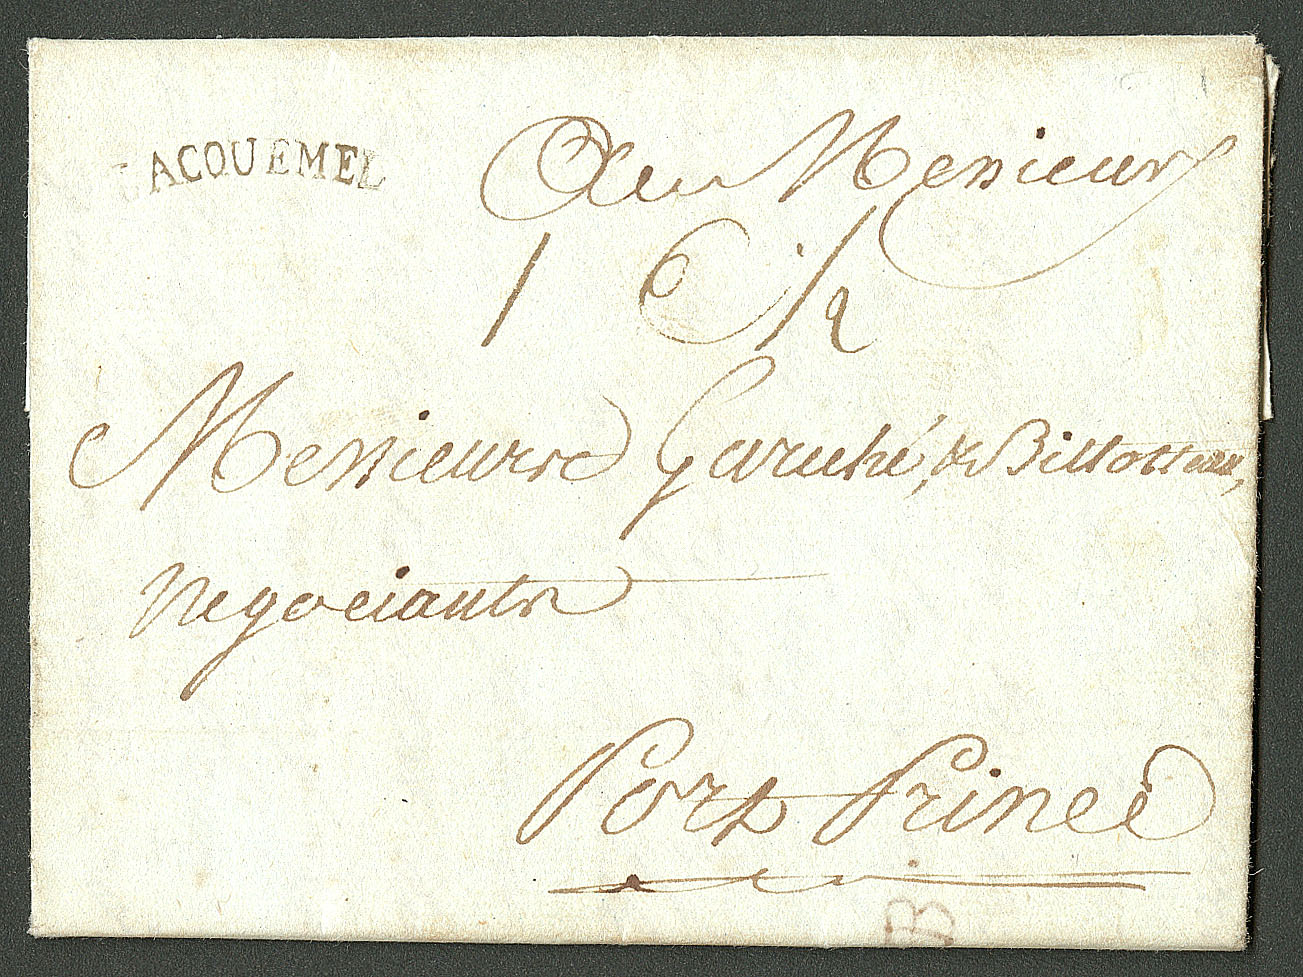 ACQUEMEL
A Messieurs
Messieurs Garuhé, & Billotteau,
Negociants
Port Prince
B